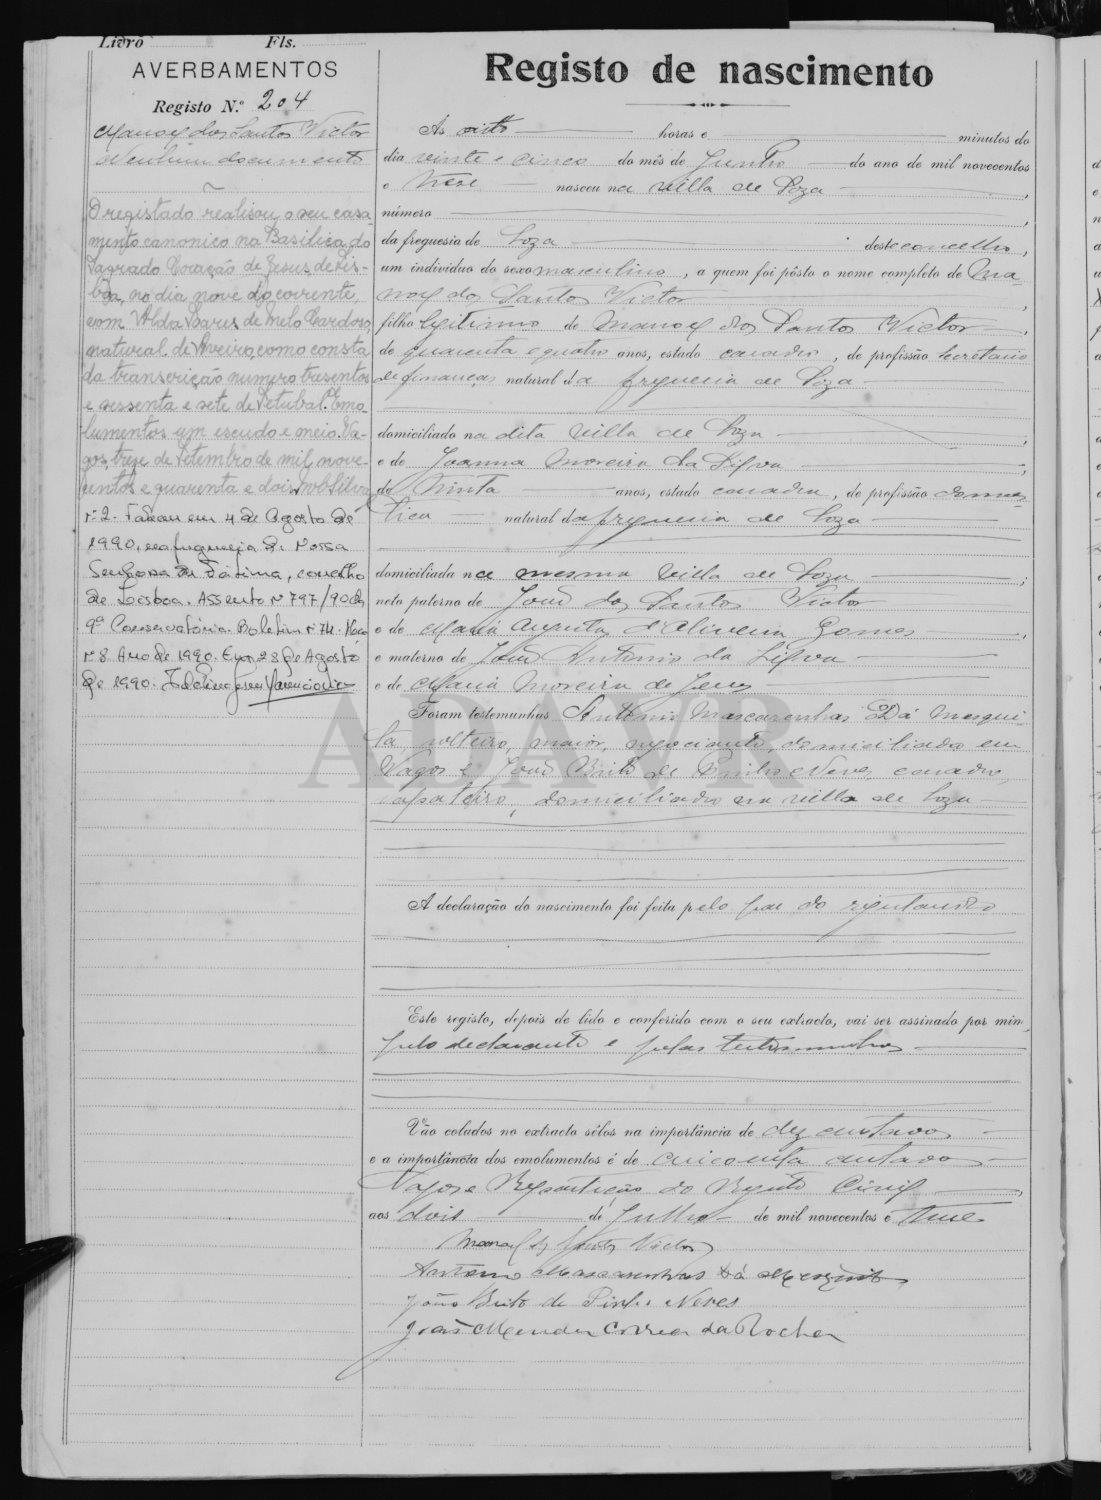 Livro Fls.
AVERBAMENTOS
Registo N.º 204
Manoel dos Santos Victor
Nenhum documento
O registado realisou o seu casa-
mento canonico na Basilica do
Sagrado Coração de Jesus de Lis-
bôa, no dia nove do corrente,
com Alda Soares de Melo Cardoso,
natural de Aveiro, como consta
da transcrição numero tresentos
e sessenta e sete de Setubal. Emo-
lumentos um escudo e meio. Va-
gos, treze de Setembro de mil nove-
centos e quarenta e dois. Silva
Nº 2. Faleceu em 4 de Agosto de
1990, na freguesia de Nossa
Senhora de Fátima, concelho
de Lisboa. Assento nº 797/90 da
9ª Conservatória. Boletim nº 74. Maço
nº 8 Ano de 1990. Em, 28 de Agosto
de 1990.
Registo de nascimento
Às oito horas e minutos do
dia vinte e cinco do mês de Junho do ano de mil novecentos
e treze nasceu na villa de Soza,
número,
da freguesia de Soza deste concelho,
um indivíduo do sexo masculino, a quem foi pôsto o nome completo de Ma-
noel dos Santos Victor,
filho legitimo de Manoel dos Santos Victor,
de quarenta e quatro anos, estado casado, de profissão secretario
de finanças natural da freguesia de Soza
domiciliado na dita villa de Soza,
e de Joanna Moreira da Silva,
de trinta anos, estado casada, de profissão domes-
tica natural da freguesia de Soza
domiciliada na mesma villa de Soza;
neto paterno de João dos Santos Victor
e de Maria Augusta d'Oliveira Gomes,
e materno de João Antonio da Silva
e de Maria Moreira de Jesus
Foram testemunhas Antonio Mascarenhas Dá Mesqui-
ta, solteiro, maior, negociante, domiciliado em
Vagos e João Brito de Pinho Neves, casado,
sapateiro, domiciliado na villa de Soza
ADAVR
A declaração do nascimento foi feita pelo pae do registando
Este registo, depois de lido e conferido com o seu extracto, vai ser assinado por mim,
pelo declarante e pelas testemunhas
Vão colados no extracto sêlos na importância de dez centavos
e a importância dos emolumentos é de cincoenta centavos
Vagos e Repartição do Registo Civil,
aos dois de Julho de mil novecentos e treze
Manoel dos Santos Victor
Antonio Mascarenhas Dá Mesquita
João Brito de Pinho Neves
João Mendes Correia da Rocha